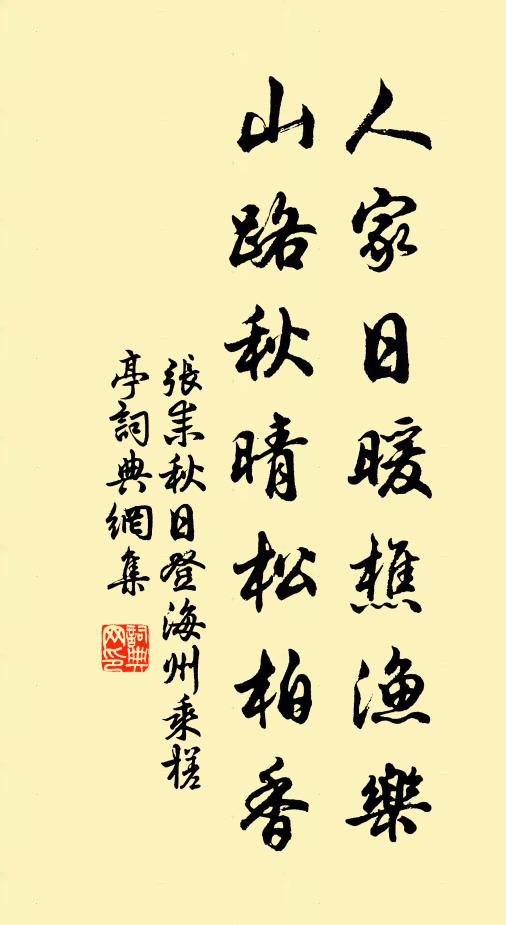 人家日暖樵漁樂
山路秋晴松柏香
張耒秋日登海州乘槎
亭詞典網集
詞典
网印